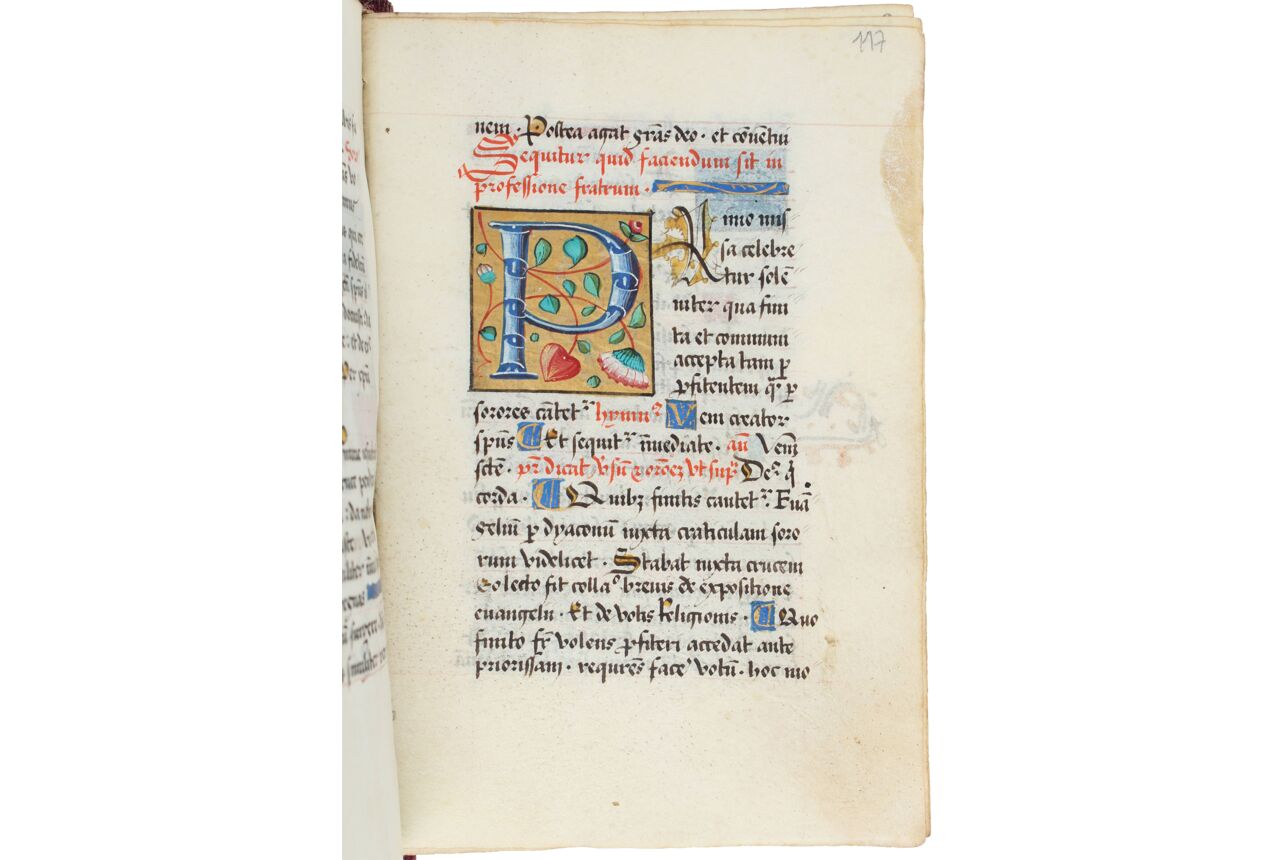 117
nem · Postea agat gr̄as deo · et cōuentui
Sequitur quid faciendum sit in
professione fratrum ·
PRimo mis
sa celebre
tur solē
niter qua fini
ta et communi
accepta tam ꝑ
ꝓfitentem q̄ ꝑ
sorores cātet᷑ hymn᷒ Veni creator
sp̄us Et sequit᷑ īmediate · an̄ Veni
sc̄te · pr̄ dicat v̄sū ⁊ or̄oēꝫ vt sup᷑ De᷒ q̄
corda · Quibꝫ finitis cantet᷑ · Euā
geliū ꝑ dyaconū iuxta craticulam soro
rum videlicet · Stabat iuxta crucem
Quo lecto fit colla° breuis de expositione
euangelii · Et de votis Religionis · Quo
finito fr̄ volens ꝓfiteri accedat ante
priorissam · requirēs face᷑ votū · hoc mo